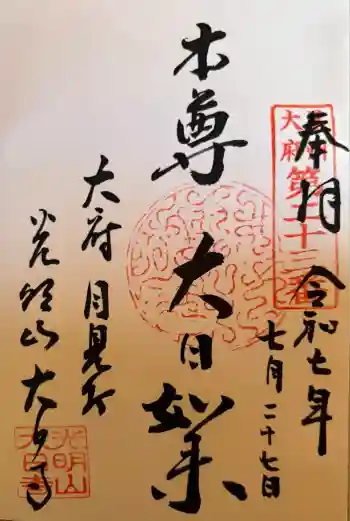 奉拝 令和七年
七月二十七日
大府 第二十三番
本尊 大日如来
大府 月見町
光明山 大日寺
光明山
大日寺